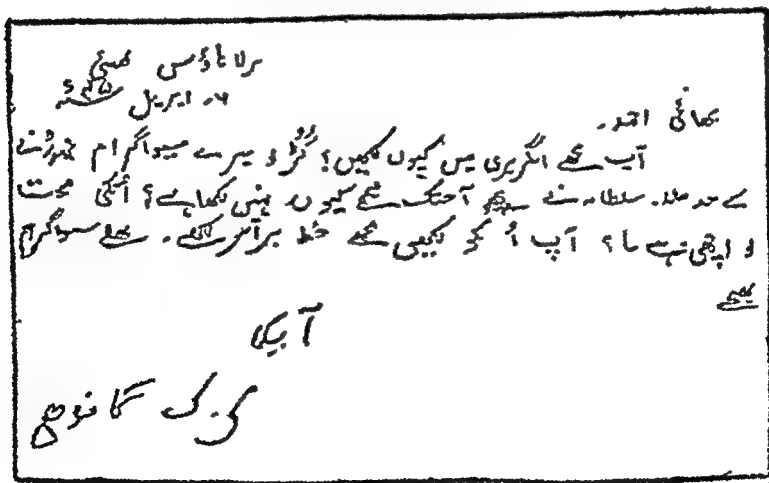 برلا ہاؤس بمبئی
۶۔ اپریل ۴۵ء
بھائی احمد۔
آپ مجھے انگریزی میں کیوں لکھیں؟ کُڑُو میرے سیواگرام چھوڑنے
کے بعد ملا۔ سلطانہ نے مجھے آجتک کیوں نہیں لکھا ہے؟ اُنکی صحت
تو اچھی ہے نا؟ آپ اُ کو لکھیں مجھے خط برابر لکھے۔ مجھے سیواگرام
بھیجے
آپکا
گاندھی